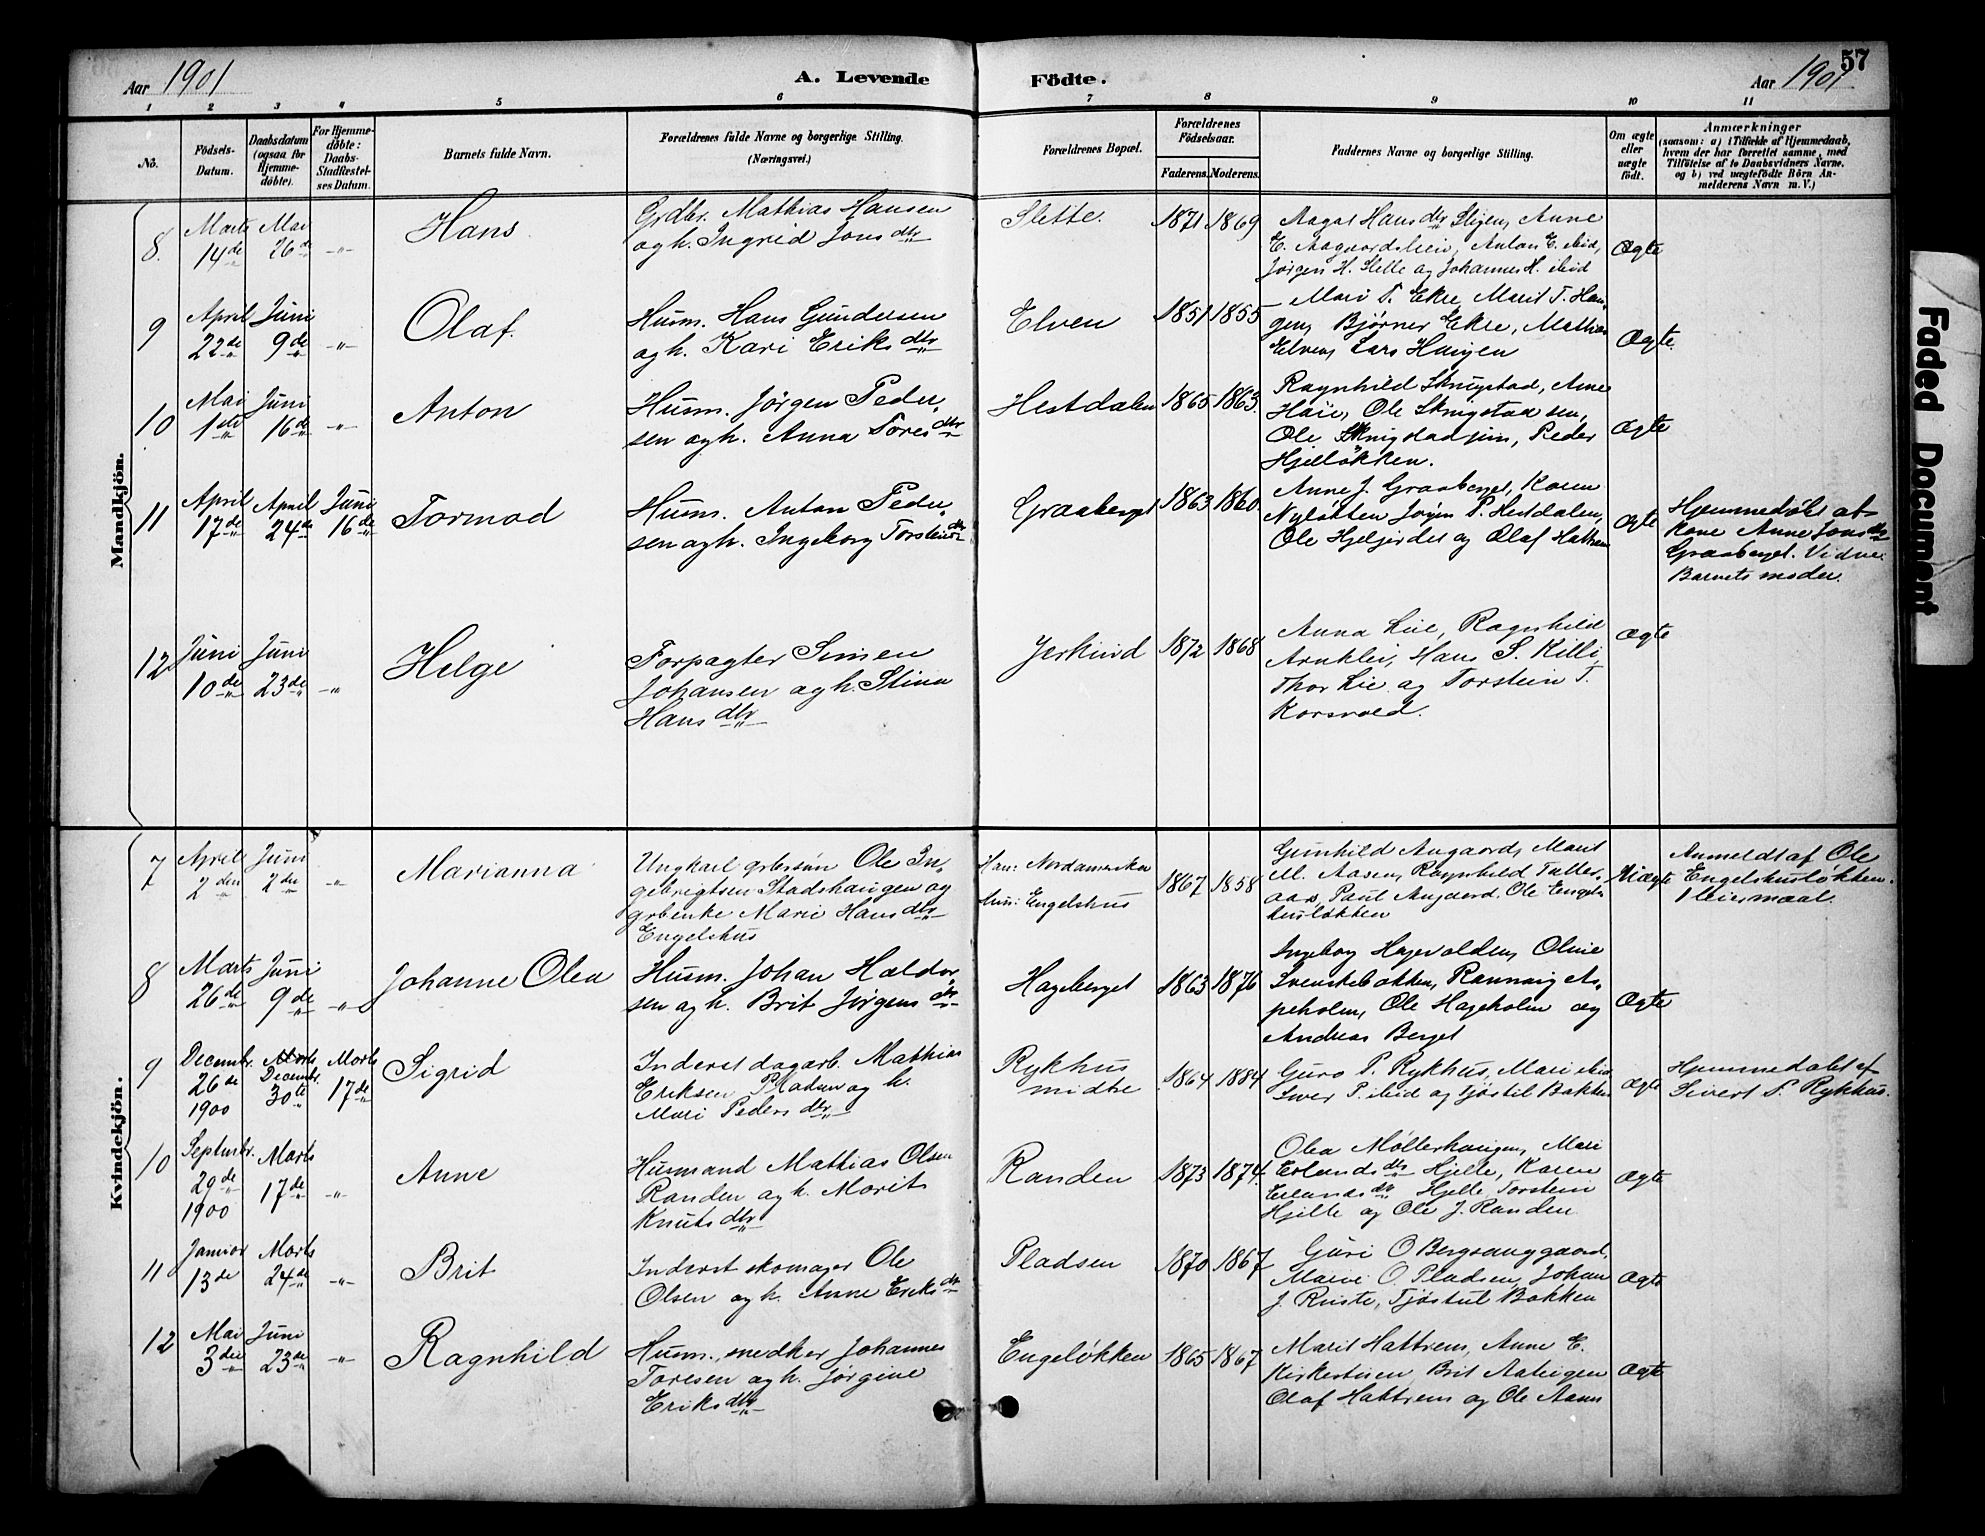 57
Aar 1901
A. Levende
Födte.
Aar 1901
1 2 3 4 5 6 7 8 9 10 11
No.
Födsels-
Datum.
Daabsdatum
(ogsaa for
Hjemme-
döbte).
For Hjemme-
döbte:
Daabs-
Stadfæstel-
ses Datum.
Barnets fulde Navn.
Forældrenes fulde Navne og borgerlige Stilling.
(Næringsvei.)
Forældrenes Bopæl.
Forældrenes
Födselsaar.
Faderens. Moderens.
Faddernes Navne og borgerlige Stilling.
Om ægte
eller
uægte
födt.
Anmærkninger
(saasom: a) i Tilfælde af Hjemmedaab,
hvem der har forrettet samme, med
Tilföielse af to Daabsvidners Navne,
og b) ved uægtefödte Börn An-
melderens Navn m. V.)
Mandkjön.
8.
Marts
14de
Mai
26de
-"-
Hans
Grdbr. Mathias Hansen
og h. Ingrid Jonsdtr
Slette.
1871 1869
Hansdtr Stigen, Anne
E. Aagaardsleie, Anton E. ibid,
Jørgen H. Slette og Johannes H. ibid
Ægte
9
April
22de
Juni
9de
-"-
Olaf.
Husm. Hans Gundersen
og h. Kari Eriksdtr
Elven
1851 1855
Mari T. Ekre, Marit T. Hau-
gen, Bjørner Ekre, Mathias
Elven, Lars Haugen
Ægte.
10
Mai
1ste
Juni
16de
-"-
Anton
Husm. Jørgen Peder-
sen og h. Anna Toresdtr
Hestdalen
1865 1863.
Ragnhild Skrugstad, Anne
Haie, Ole Skrugstad sen,
Ole Skrugstad jun, Peder
Hjelløkken.
Ægte
11
April
17de
April
24de
Juni
16de
Tormod
Husm. Anton Peder-
sen og h. Ingeborg Torsteinsdtr
Graaberget
1863 1860
Anne J. Graaberget, Karen
Nyløkken Jørgen P. Hestdalen,
Ole Hjelgjerdet og Olaf Hattrem
Ægte
Hjemmedøbt af
Kone Anne Jonsdtr
Graaberget. Vidne
Barnets moder.
12
Juni
10de
Juni
23de
-"-
Helge
Forpagter Simen
Johansen og h. Stina
Hansdtr
Jerkind
1872 1868
Anna Lie, Ragnhild
Arnklei, Hans S. Killi,
Thor Lie og Torstein T.
Korsvold.
Ægte
Kvindekjön.
7
April
2den
Juni
2den
-"-
Marianna
Ungkarl grbrsøn Ole In-
gebrigtsen Stadshaugen og
grbenke Marie Hansdtr
Engelshus
Han: Nordamerika
Hun: Engelshus
1867 1858
Gunhild Augaard, Marit
M. Aasen, Ragnhild
aas, Paul Augaard. Ole Engels-
husløkken
Uægte
Anmeldt af Ole
Engelshusløkken.
1 leiermaal.
8
Marts
26de
Juni
9de
-"-
Johanne Olea
Husm. Johan Haldor-
sen og h. Brit Jørgensdtr
Hageberget
1863 1876
Ingeborg Hagevolden, Oline
Svenskebakken, Rannvig As-
peholen, Ole Hageholen og
Andreas Berget
Ægte
9
Decembr.
26de
1900
Marts
Decembr.
30te
Marts
17de
Sigrid
Inderst dagarb. Mathias
Eriksen Pladsen og h.
Mari Pedersdtr
Rykhus
midtre
1864 1884
Guro P. Rykhus, Mari ibid
Iver P. ibid og Tjøstil Bakken
Ægte
Hjemmedøbt af
Sivert P. Rykhus.
10
Septembr.
29de
1900
Marts
17de
-"-
Anne
Husmand Mathias Olsen
Randen og h. Marit
Knutsdtr
Randen
1873 1874.
Olea Møllerhaugen, Mari
Erlandsdtr Hjelle, Karen
Erlandsdtr Hjelle Torstein
Hjelle og Ole J. Randen
Ægte
11
Januar
13de
Marts
24de
-"-
Brit
Inderst skomager Ole
Olsen og h. Anne Eriksdtr
Pladsen
1870 1867
Guri O Bergsauggaard,
Marie O. Pladsen, Johan
J. Ruste, Tjøstul Bakken
Ægte
12
Mai
3die
Juni
23de
-"-
Ragnhild
Husm., snedker Johannes
Toresen og h. Jørgine
Eriksdtr
Engeløkken
1865 1867
Marit Hattrem, Anne E.
Kirkestuen, Brit Aahaugen
Olaf Hattrem og Ole Aaen
Ægte
Faded Document